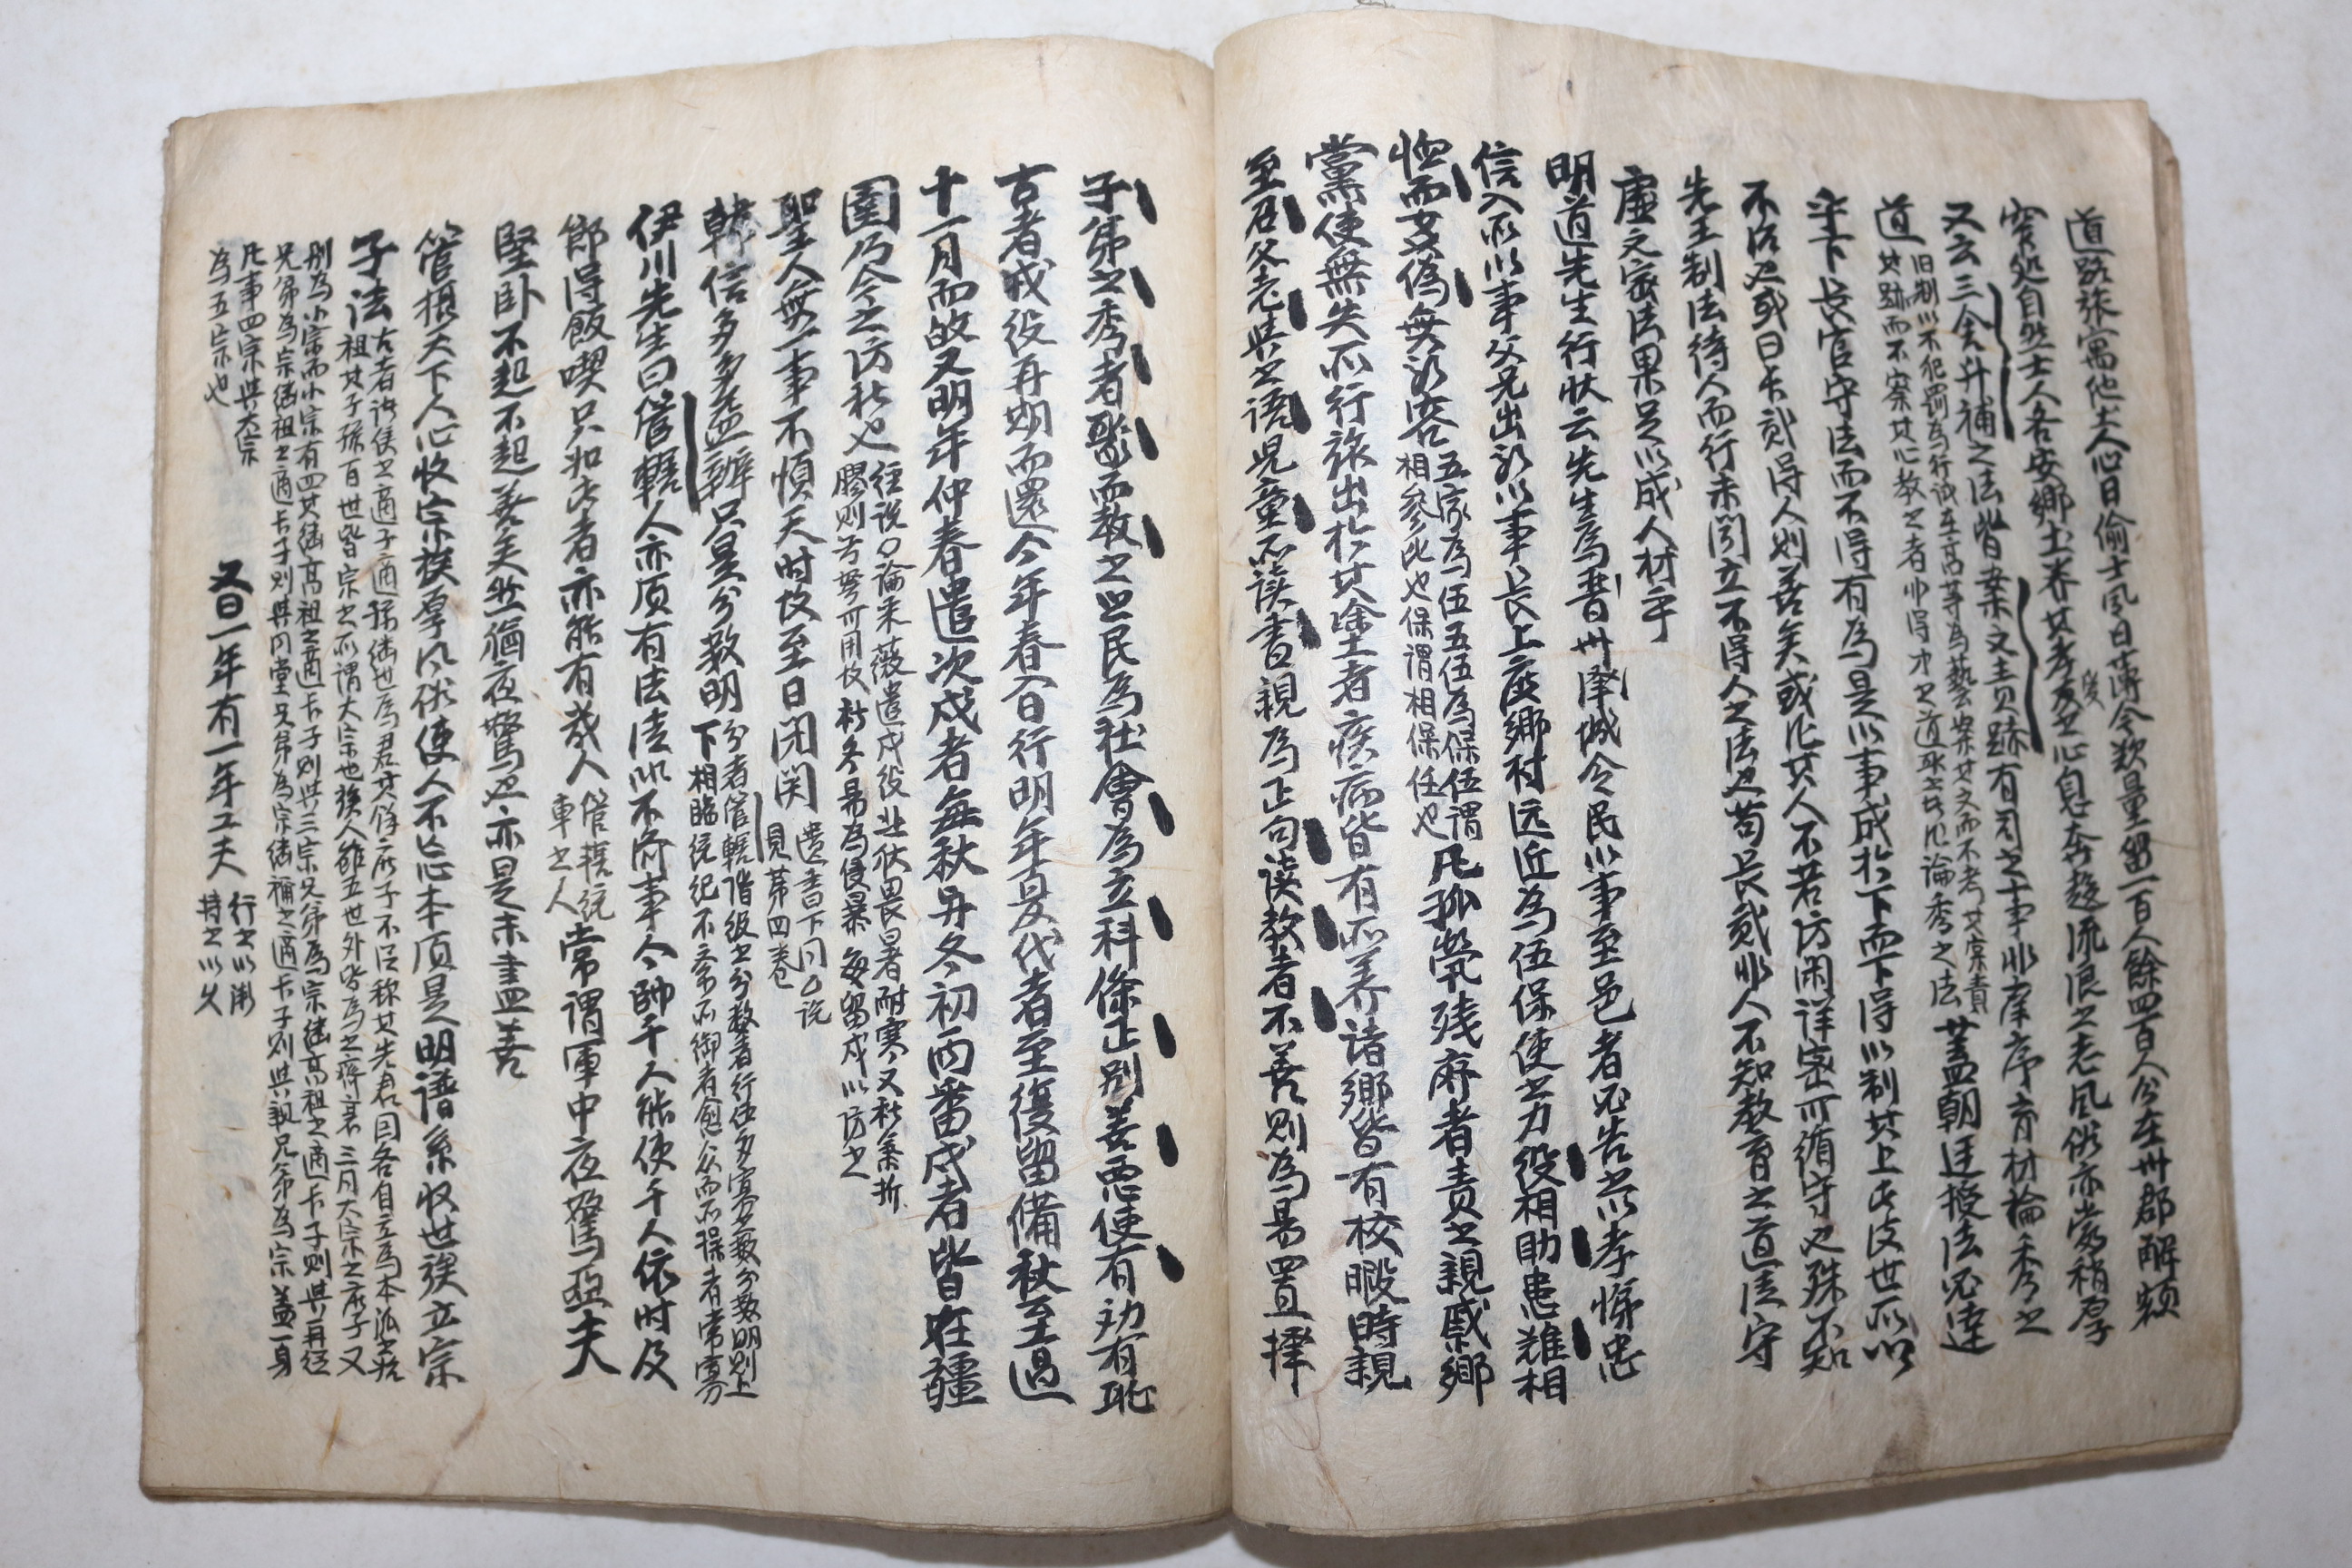 道路张寓他土人心日偷士風日薄今欲量留一百人餘四百人分在州郡解額
窄処自然士人各安鄉土养其孝友之心息奔趨流浪之志風俗亦當稍厚
又云三舍升補之法皆案文責跡有司之事非庠序育材掄秀之
道
旧制以不犯罰為行試在高等為藝案其文而不考其實責
其跡而不察其心教之者得才之道取士論秀之法
蓋朝廷授法必達
乎下長官守法而不得有為是以事成於下而下得以制其上此後世所以
不治也或曰长贰得人則善矣或非其人不若防閑詳密可循守也殊不知
先王制法待人而行未聞立不得人之法也苟长贰非人不知教育之道徒守
虛文密法果足以成人材乎
明道先生行狀云先生為晋州澤城令民以事至邑者必告之以孝悌忠
信入所以事父兄出所以事長上度鄉村远近為伍保使之力役相助患難相
恤而姦偽無所容
五家為伍五伍為保伍謂
相參比也保謂相保任也
凡孤煢残疾者責之親戚鄉
黨使無失所行旅出於其途者疾病皆有所养諸鄉皆有校暇時親
至召父老與之語児童所读書親為正句读教者不善則為易置擇
子弟之秀者聚而教之鄉民為社會為立科條正别善惡使有劝有耻
古者戍役再期而還今年春莫行明年夏代者至復留備秋至過
十一月而故又明年仲春遣次戍者每秋与冬初兩番戍者皆在疆
圉乃今之防秋也
經说〇論采薇遣戍役北狄畏暑耐寒又秋氣折
膠則弓弩可用故秋冬易為侵暴每留戍以防之
聖人無一事不順天时故至日闭関
遺書下同〇说
見苐四卷
韓信多多益辦只是分数明
分者管轄階級之分数者行伍多寡之数分数明則上
下相臨统纪不紊所御者愈众而所操者常寡
伊川先生曰管轄人亦須有法徒以不济事今帥千人能使千人依时及
節得飯喫只如此者亦能有幾人
管轄统
軍之人
常謂軍中夜驚亞夫
堅卧不起不起善矣然猶夜驚也亦是未盡善
管攝天下人心收宗族厚风俗使人不忘本須是明譜系收世族立宗
子法
古者诸侯之適子適孫继世為君其馀庶子不得称其先君因各自立為本派之始
祖其子孫百世皆宗之所謂大宗也族人雖五世外皆為之齊衰三月大宗之庶子又
别為小宗而小宗有四其继高祖之適长子則與三宗兄弟為宗继高祖之適长子則與再從
兄弟為宗继祖之適长子則與同堂兄弟為宗继禰之適长子則與親兄弟為宗盖一身
凡事四宗與大宗
為五宗也
又曰一年有一年工夫
行之以漸
持之以久